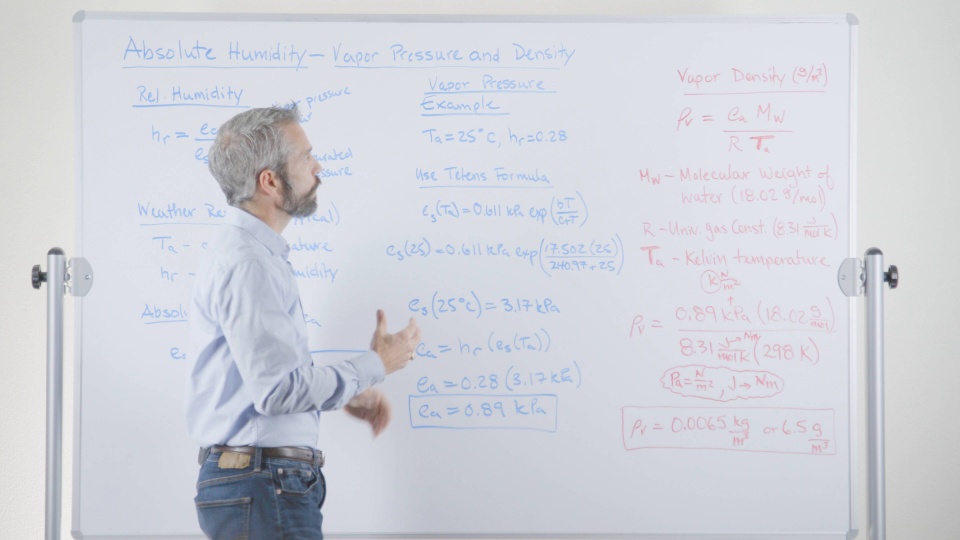 Absolute Humidity — Vapor Pressure and Density
Rel. Humidity
pressure
hr = e
Weather Re
Ta -
hr -
Absol
Vapor Pressure
Example
Ta = 25°C, hr = 0.28
Use Tetens Formula
es(Ta) = 0.611 kPa exp(bT/(c+T))
es(25) = 0.611 kPa exp(17.502(25)/(240.97+25))
es(25°C) = 3.17 kPa
ea = hr (es(Ta))
ea = 0.28 (3.17 kPa)
ea = 0.89 kPa
Vapor Density (g/m³)
ρv = ea Mw / R Ta
Mw - Molecular Weight of
water (18.02 g/mol)
R - Univ. gas Const. (8.31 J/mol K)
Ta - Kelvin temperature
k N/m²
ρv = 0.89 kPa (18.02 g/mol) / 8.31 J/mol K (298 K)
Nm
Pa = N/m², J → Nm
ρv = 0.0065 kg/m³ or 6.5 g/m³